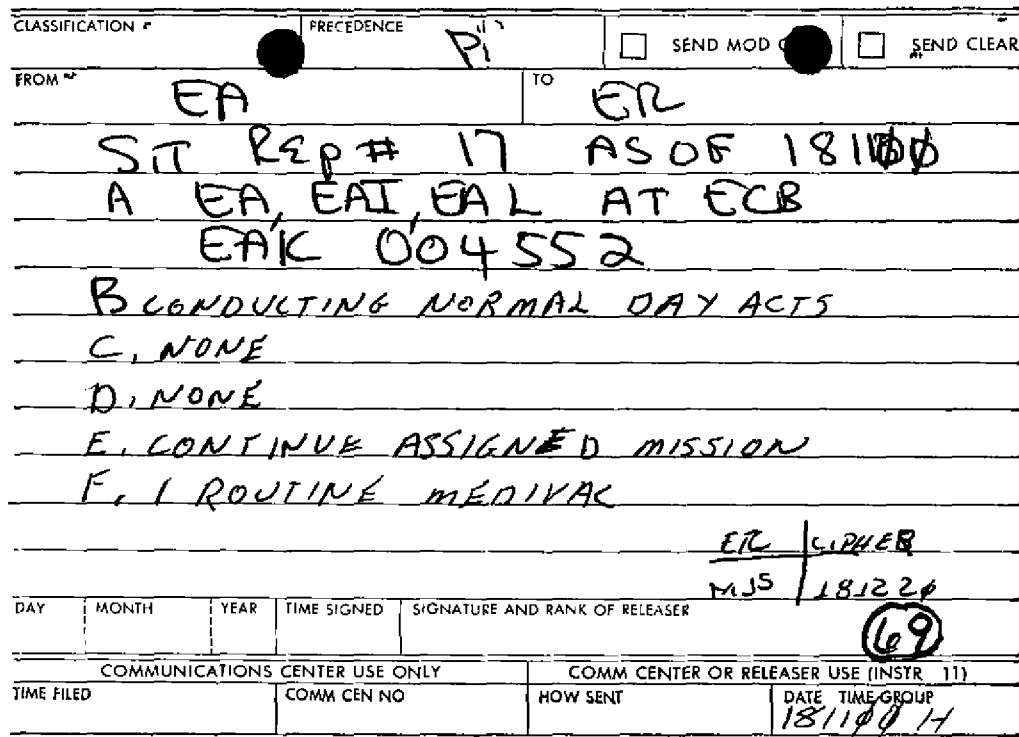 CLASSIFICATION PRECEDENCE Pi SEND MOD SEND CLEAR
FROM EA TO ER
SIT REP # 17 AS OF 181100
A EA, EAI, EAL AT ECB
EAK 004552
B CONDUCTING NORMAL DAY ACTS
C. NONE
D. NONE
E. CONTINUE ASSIGNED MISSION
F. 1 ROUTINE MEDIVAC
ER CIPHER
MJS 181220
DAY MONTH YEAR TIME SIGNED SIGNATURE AND RANK OF RELEASER
69
COMMUNICATIONS CENTER USE ONLY COMM CENTER OR RELEASER USE (INSTR 11)
TIME FILED COMM CEN NO HOW SENT DATE TIME GROUP
181100 H